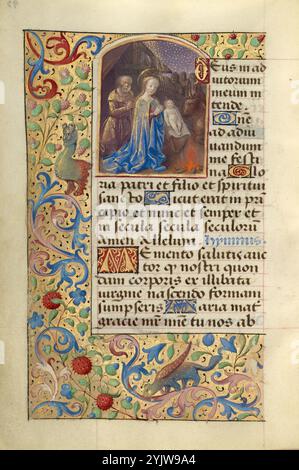 Deus in ad
iutorium
meum in
tende. Dne
ad adiu
uandum
me festi
na Glo
ria patri et filio et spiritui
sancto Sicut erat in prin
cipio et nunc et semper et
in secula seculorum
amen alleluya hymnus
Memento salutis auc
tor q nostri quon
dam corporis ex illibata
uirgine nascendo formam
sumpseris Maria mat
gracie mr mie tu nos ab
alamy
Image ID: 2YJW9A4
www.alamy.com